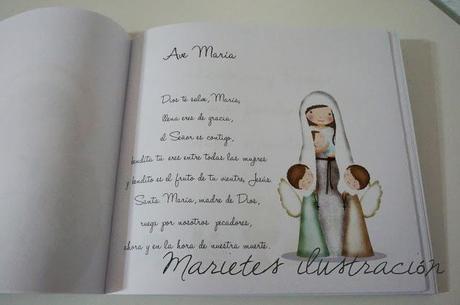 Ave María
Dios te salve, María,
llena eres de gracia,
el Señor es contigo,
bendita tú eres entre todas las mujeres
y bendito es el fruto de tu vientre, Jesús
Santa María, madre de Dios,
ruega por nosotros pecadores,
ahora y en la hora de nuestra muerte.
Marietes ilustración